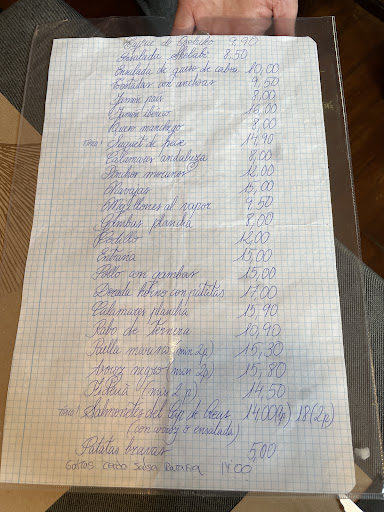 de 9,90
Ensalada 8,50
Ensalada de queso de cabra 10,00
Tostadas con anchoas 9,50
Jamón país 8,00
Jamón ibérico 16,00
Queso manchego 8,00
Nou! Suquet de peix 14,90
Calamares andaluza 8,00
Pinchos morunos 12,00
Navajas 15,00
Mejillones al vapor 9,50
Gambas plancha 8,00
Codillo 12,00
Entraña 15,00
Pollo con gambas 15,00
Dorada horno con patatas 17,00
Calamares plancha 15,90
Rabo de ternera 10,90
Paella marinera (min 2p) 15,30
Arroz negro (min 2p) 15,80
Fideuà (min 2p) 14,50
Nou! Salmonetes del Cap de Creus 14,00 18 (2p)
(con o ensalada)
Patatas bravas 5,00
cerdo salsa 14'00